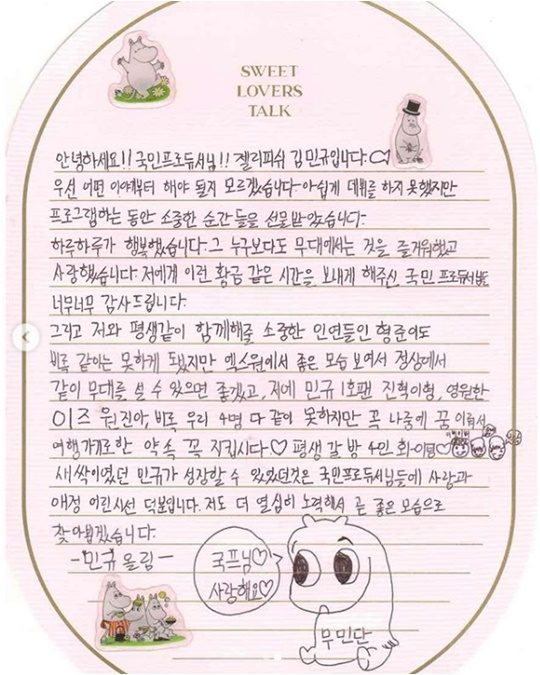 SWEET
LOVERS
TALK
안녕하세요!! 국민프로듀서님!! 젤리피쉬 김민규입니다.♡
우선 어떤 이야기부터 해야 될지 모르겠습니다. 아쉽게 데뷔를 하지 못했지만
프로그램하는 동안 소중한 순간들을 선물받았습니다.
하루하루가 행복했습니다. 그 누구보다도 무대에서는 것을 즐거워했고
사랑했습니다. 저에게 이런 황금 같은 시간을 보내게 해주신 국민프로듀서님들
너무너무 감사드립니다.
그리고 저와 평생같이 함께해줄 소중한 인연들인 형준이도
비록 같이는 못하게 됐지만 엑스원에서 좋은 모습 보여서 정상에서
같이 무대를 설 수 있으면 좋겠고, 저에 민규 1호팬 진혁이형, 영원한
이즈 원진아, 비록 우리 4명 다 같이 못하지만 꼭 나중에 꿈 이뤄서
여행가기로한 약속 꼭 지킵시다♡ 평생 갈 방 4인 화이팅♡
새싹이였던 민규가 성장할 수 있었던것은 국민프로듀서님들에 사랑과
애정 어린시선 덕분입니다. 저도 더 열심히 노력해서 곧 좋은 모습으로
찾아뵙겠습니다.
-민규 올림-
국프님♡
사랑해요♡
무민단